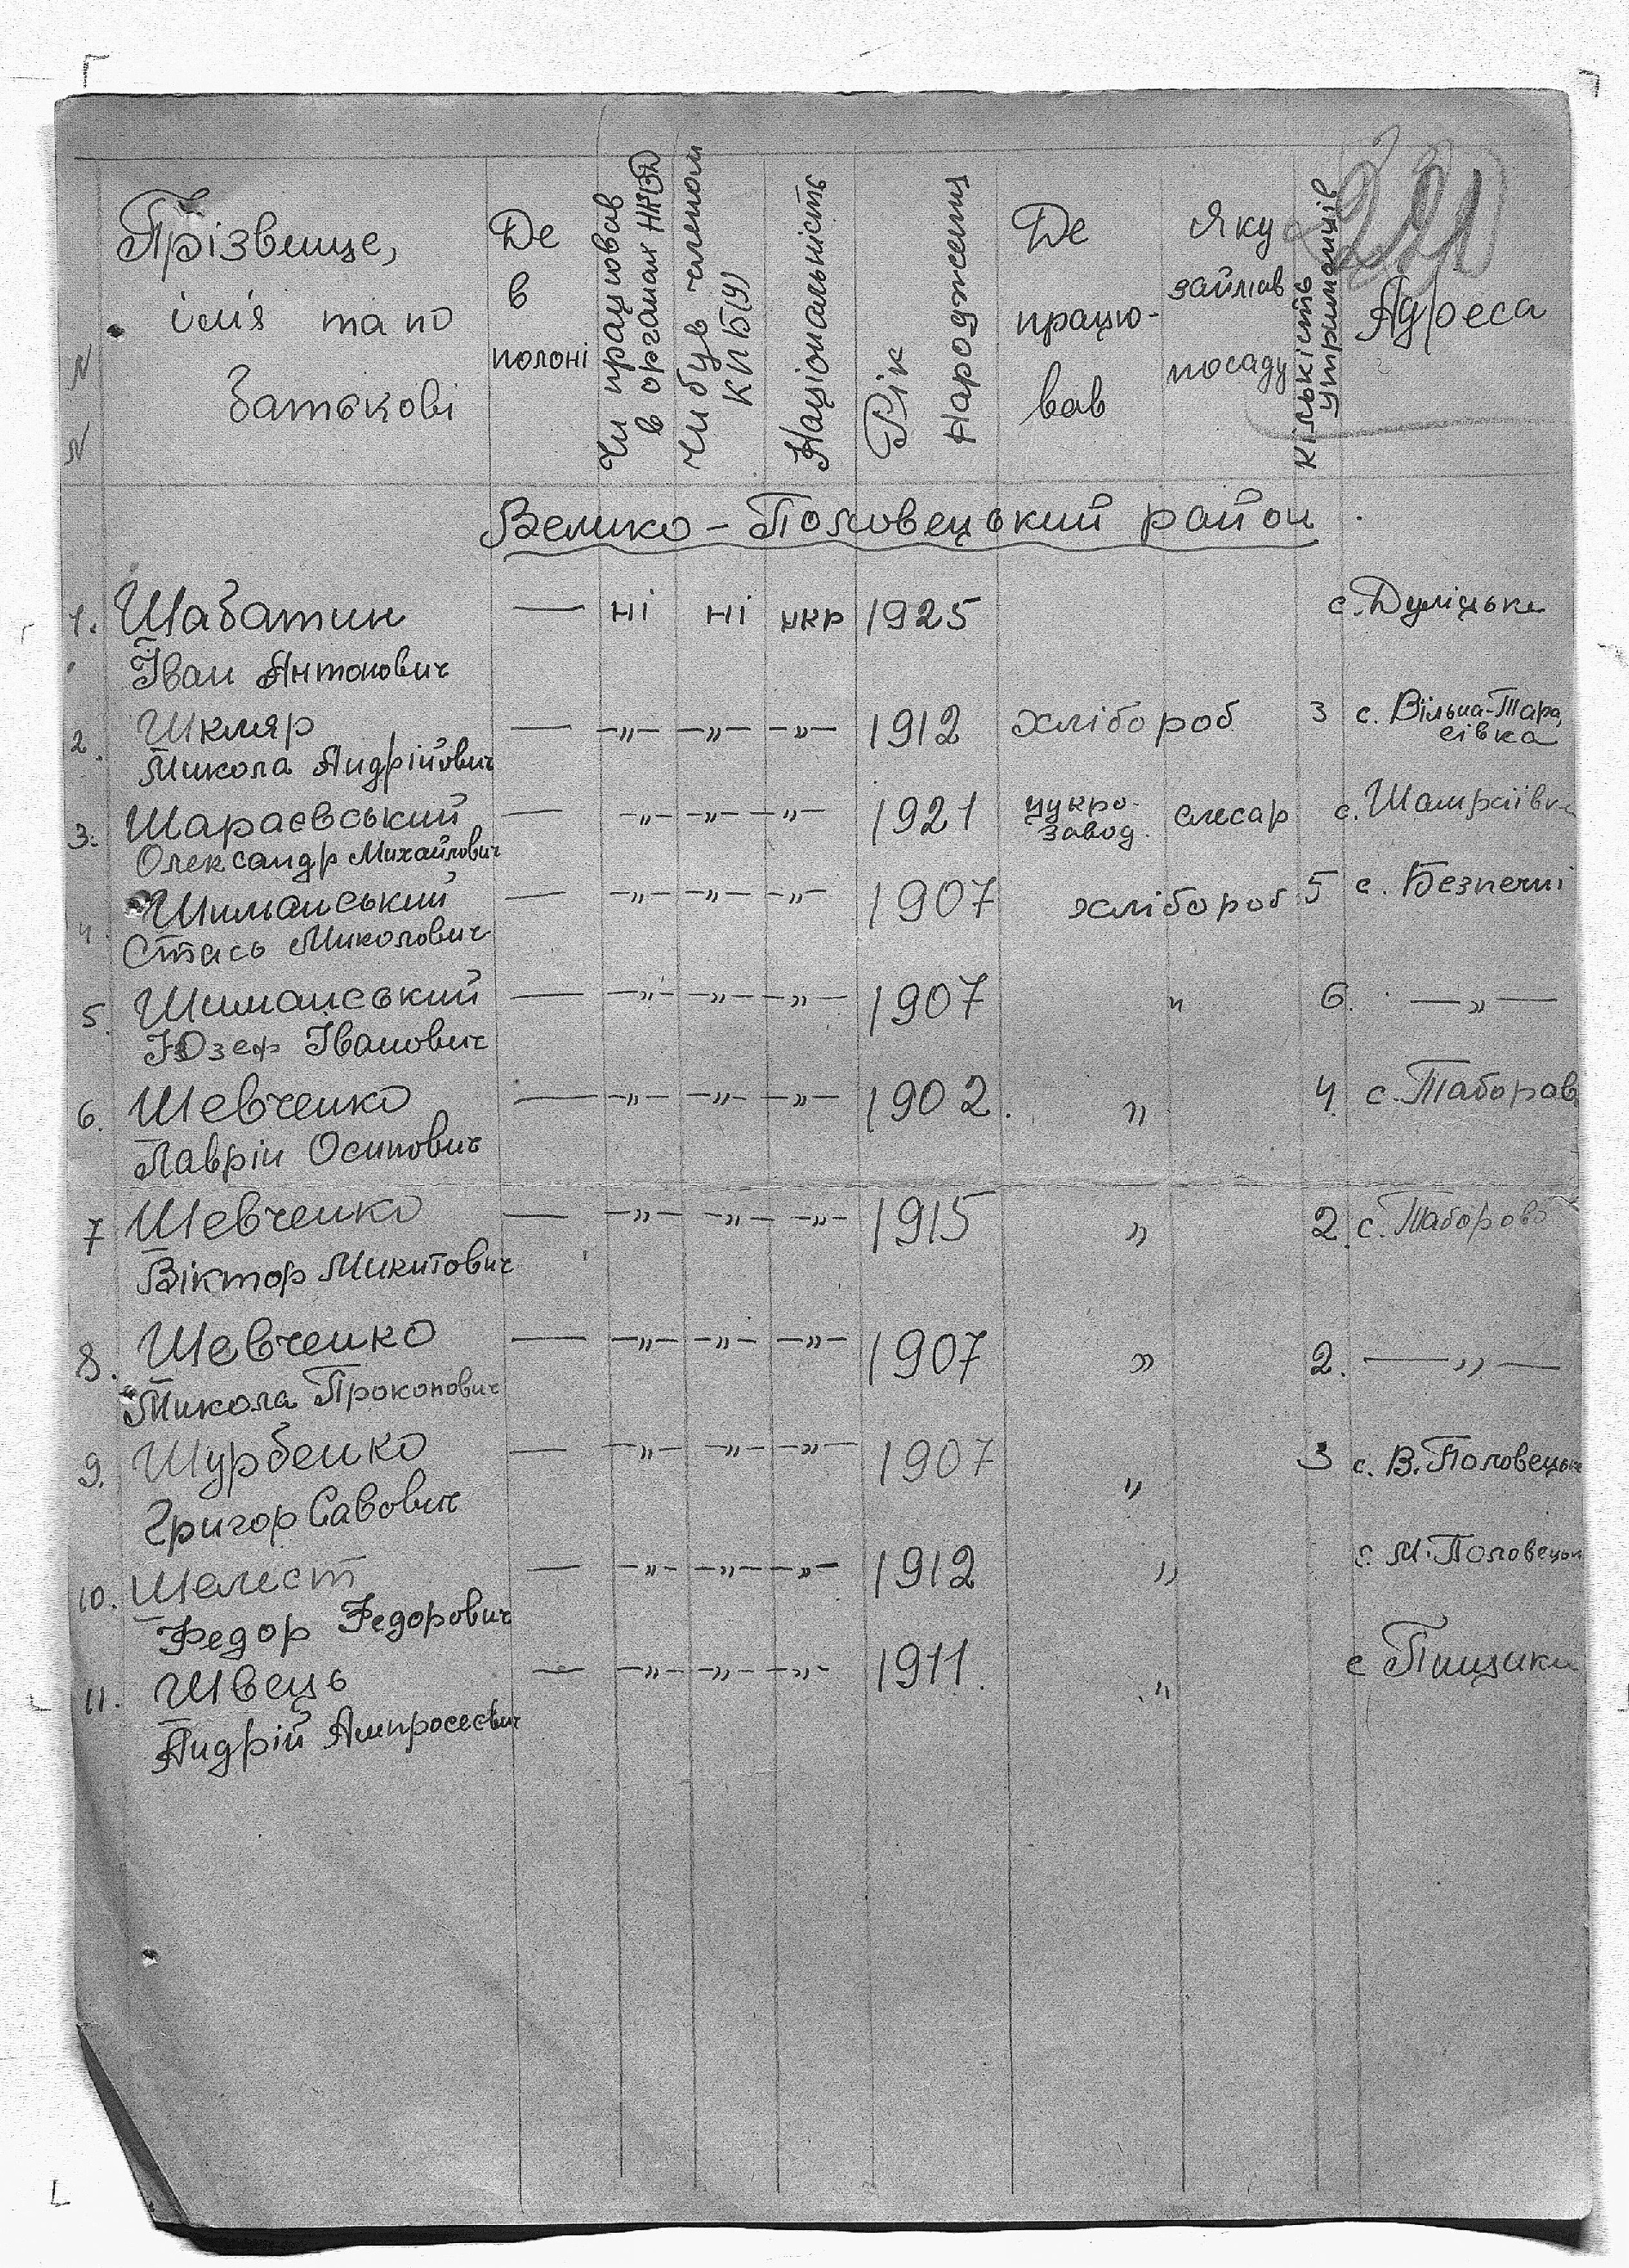 221
N N
Прізвище, ім'я та по батькові
Де в полоні
Чи працював в органах НКВД
Чи був членом КПБ(У)
Національність
Рік народження
Де працю-вав
Яку займав посаду
Кількість утриманців
Адреса
Велико-Половецький район.
1. Шабатин — ні ні укр 1925 с. Дуліцьке
Іван Антонович
2. Шкляр — —"— —"— —"— 1912 хлібороб 3 с. Вільна-Тара
Микола Андрійович сівка
3. Шараєвський — —"— —"— —"— 1921 цукро-завод. слесар с. Шамраївка
Олександр Михайлович
4. Шиманський — —"— —"— —"— 1907 хлібороб 5 с. Безпечні
Стась Миколович
5. Шиманський — —"— —"— —"— 1907 " 6. —"—
Юзеф Іванович
6. Шевченко — —"— —"— —"— 1902. " 4. с. Таборов
Лаврін Осипович
7 Шевченко — —"— —"— —"— 1915 " 2. с. Таборов
Віктор Микитович
8. Шевченко — —"— —"— —"— 1907 " 2. —"—
Микола Прокопович
9. Шурбенко — —"— —"— —"— 1907 " 3 с. В. Половецьке
Григор Савович
10. Шелест — —"— —"— —"— 1912 " с. М. Половецьк
Федор Федорович
11. Швець — —"— —"— —"— 1911. " с Пищики
Андрій Ампросеєвич